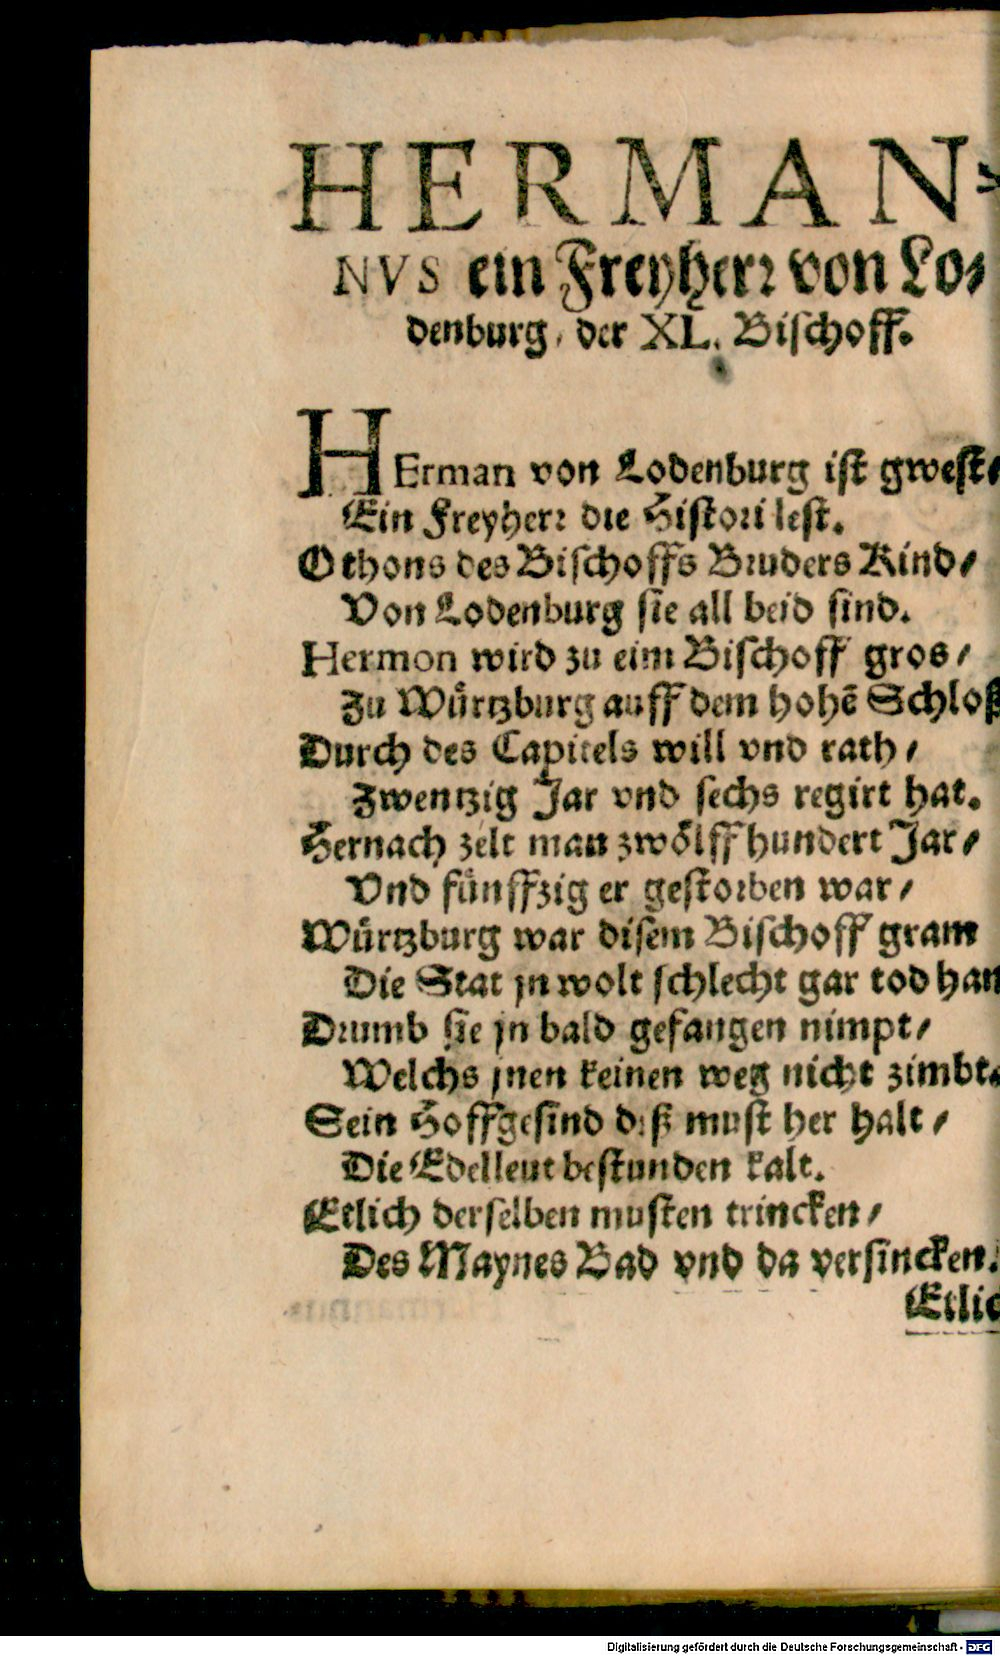 HERMAN⸗
NVS ein Freyherr von Lo⸗
denburg, der XL. Bischoff.
HErman von Lodenburg ist gwest/
Ein Freyherr die Histori lest.
Othons des Bischoffs Bruders Kind/
Von Lodenburg sie all beid sind.
Hermon wird zu eim Bischoff gros/
Zu Wuͤrtzburg auff dem hohē Schloß
Durch des Capitels will vnd rath/
Zwentzig Jar vnd sechs regirt hat.
Hernach zelt man zwoͤlff hundert Jar/
Vnd fuͤnffzig er gestorben war/
Wuͤrtzburg war disem Bischoff gram
Die Stat jn wolt schlecht gar tod han
Drumb sie jn bald gefangen nimpt/
Welchs jnen keinen weg nicht zimbt.
Sein Hoffgesind diß must her halt/
Die Edelleut bestunden kalt.
Etlich derselben musten trincken/
Des Maynes Bad vnd da versincken.
Etlic
Digitalisierung gefördert durch die Deutsche Forschungsgemeinschaft - DFG